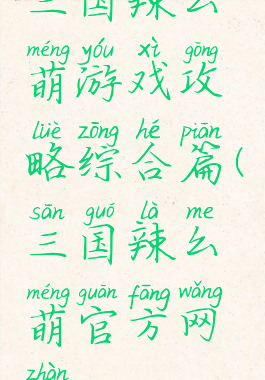 三国辣么
méng yóu xì gōng
萌游戏攻
lüè zōng hé piān
略综合篇(
sān guó là me
三国辣么
méng guān fāng wǎng
萌官方网
zhàn